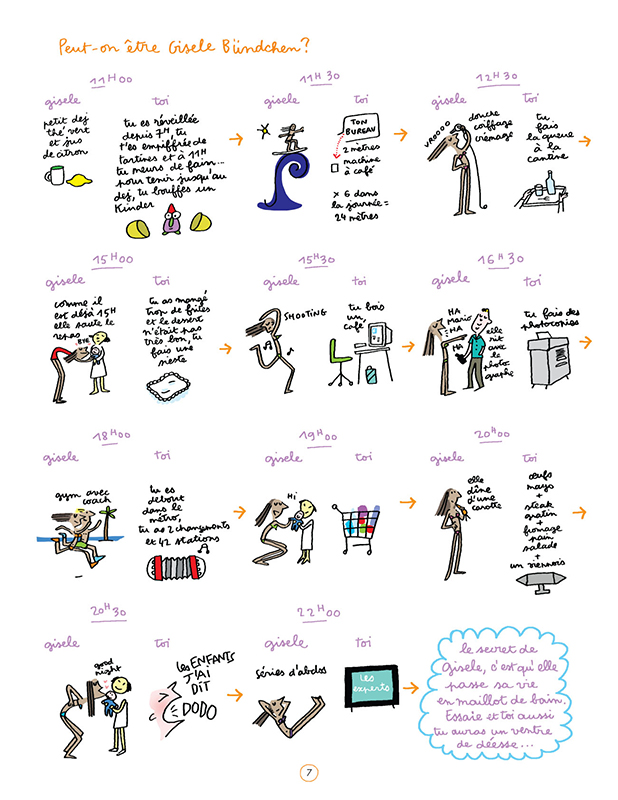 Peut-on être Gisele Bündchen?
11H00
gisele
toi
petit dej
thé vert
et jus
de citron
tu es réveillée
depuis 7H, tu
t'es empiffrée de
tartines et à 11H
tu meurs de faim...
pour tenir jusqu'au
dej, tu bouffes un
Kinder
11H30
gisele
toi
TON
BUREAU
2 mètres
machine
à café
x 6 dans
la journée =
24 mètres
12H30
gisele
toi
VROOOO
douche
coiffage
crémage
tu
fais
la queue
à la
cantine
15H00
gisele
toi
comme il
est déjà 15H
elle saute le
repas
tu as mangé
trop de frites
et le dessert
n'était pas
très bon, tu
fais une
sieste
15H30
gisele
toi
SHOOTING
tu bois
un
café
16H30
gisele
toi
HA
Mario
HA
HA
elle
rit
avec
le
photo
graphe
tu fais des
photocopies
18H00
gisele
toi
gym avec
coach
tu es
debout
dans le
métro,
tu as 2 changements
et 42 stations
19H00
gisele
toi
Hi
20H00
gisele
toi
elle
dîne
d'une
carotte
œufs
mayo
+
steak
gratin
+
fromage
pain
salade
+
un viennois
20H30
gisele
toi
good
night
les ENFANTS
J'AI
DIT
DODO
22H00
gisele
toi
séries d'abdos
les
experts
le secret de
Gisele, c'est qu'elle
passe sa vie
en maillot de bain.
Essaie et toi aussi
tu auras un ventre
de déesse...
7